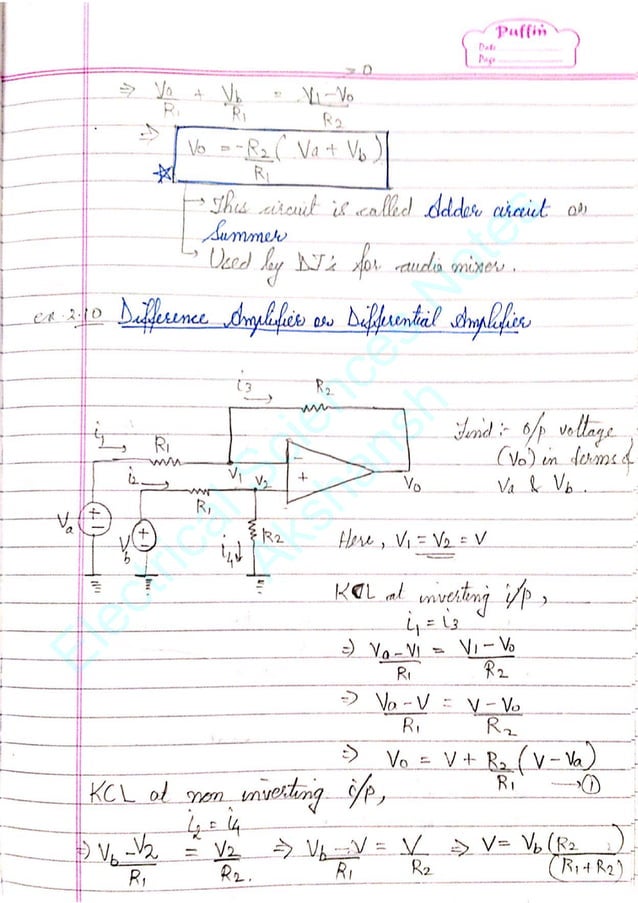 Puffin
Date
Page
=0
⇒ Va/R1 + Vb/R1 = V1-Vo/R2
⇒ Vo = -R2/R1 ( Va + Vb )
→ This circuit is called Adder circuit or
Summer
→ Used by DJ's for audio mixer.
ex 2.10 Difference Amplifier or Differential Amplifier
i3 → R2
i1 → R1
Find :- o/p voltage
(Vo) in terms of
Va & Vb.
V1 V2 - + Vo
i2 → R1
Va + - Vb + - i4↓ R2
Here, V1 = V2 = V
KCL at inverting i/p,
i1 = i3
⇒ Va-V1/R1 = V1-Vo/R2
⇒ Va-V/R1 = V-Vo/R2
⇒ Vo = V + R2/R1 (V-Va)
→ ①
KCL at non inverting i/p,
i2 = i4
⇒ Vb-V2/R1 = V2/R2. ⇒ Vb-V/R1 = V/R2 ⇒ V = Vb (R2 )/(R1+R2)
Electrical Sciences Notes
Akshansh